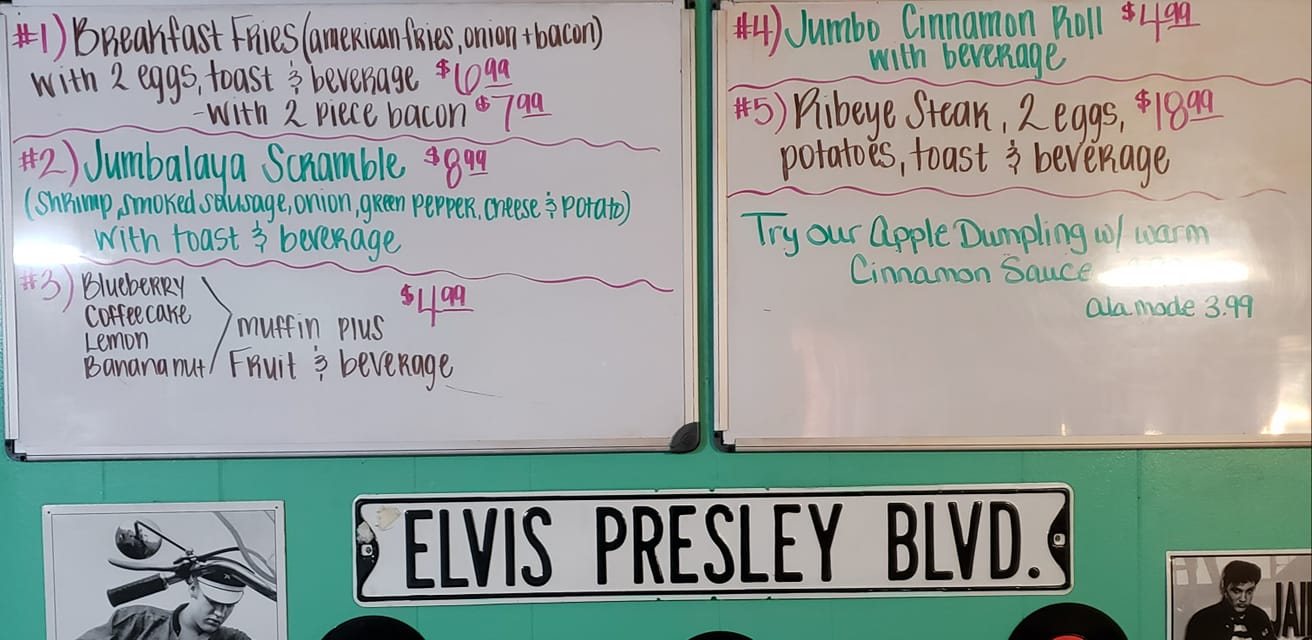 #1) Breakfast Fries (american fries, onion + bacon)
with 2 eggs, toast & beverage $6.99
-with 2 piece bacon $7.99
#2) Jumbalaya Scramble $8.99
(Shrimp, smoked sausage, onion, green pepper, cheese & potato)
with toast & beverage
#3) Blueberry
Coffeecake
Lemon
Banana nut
$4.99
muffin plus
Fruit & beverage
#4) Jumbo Cinnamon Roll $4.99
with beverage
#5) Ribeye Steak, 2 eggs, $18.99
potatoes, toast & beverage
Try our Apple Dumpling w/ warm
Cinnamon Sauce
ala mode 3.99
ELVIS PRESLEY BLVD.
JAI